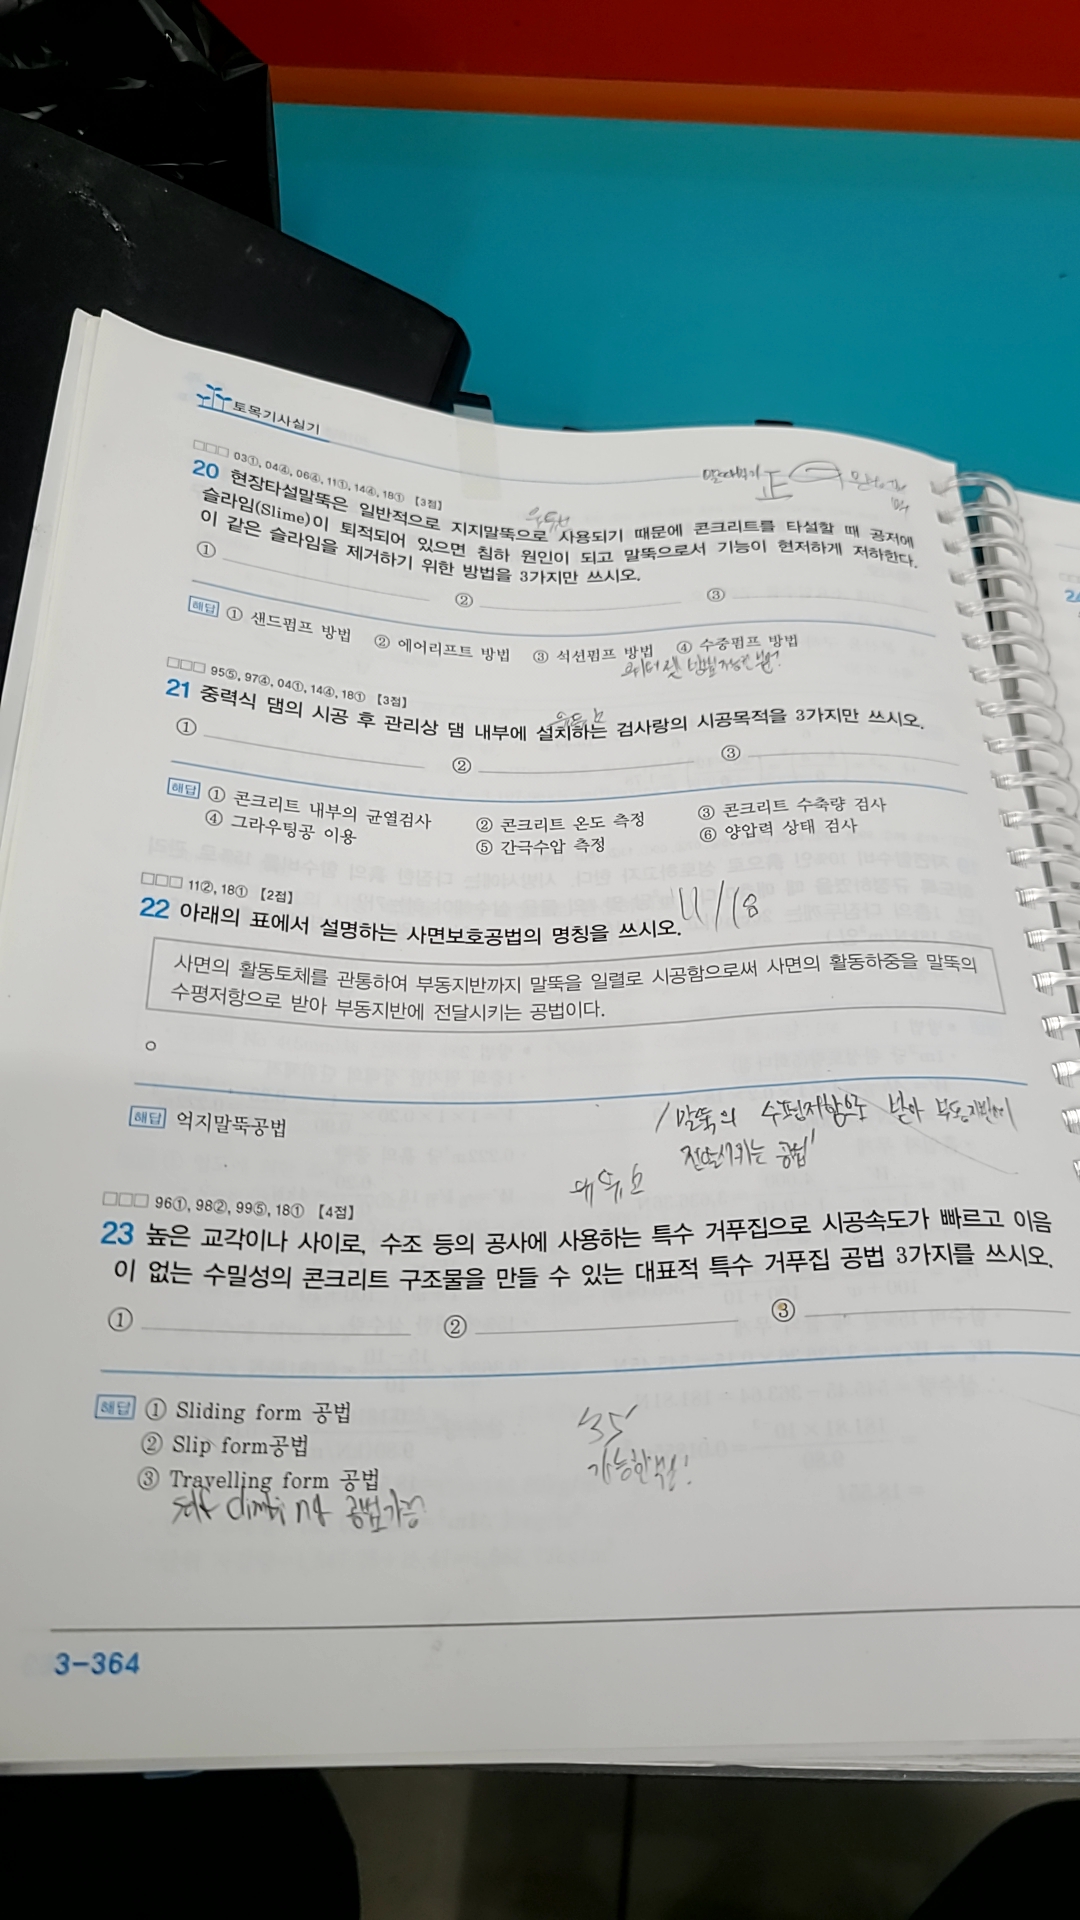 토목기사실기
□□□ 03①, 04④, 06④, 11①, 14④, 18① 【3점】
20 현장타설말뚝은 일반적으로 지지말뚝으로 사용되기 때문에 콘크리트를 타설할 때 공저에
슬라임(Slime)이 퇴적되어 있으면 침하 원인이 되고 말뚝으로서 기능이 현저하게 저하한다.
이 같은 슬라임을 제거하기 위한 방법을 3가지만 쓰시오.
① ② ③
해답 ① 샌드펌프 방법 ② 에어리프트 방법 ③ 석션펌프 방법 ④ 수중펌프 방법
□□□ 95⑤, 97④, 04①, 14④, 18① 【3점】
21 중력식 댐의 시공 후 관리상 댐 내부에 설치하는 검사랑의 시공목적을 3가지만 쓰시오.
① ② ③
해답 ① 콘크리트 내부의 균열검사 ② 콘크리트 온도 측정 ③ 콘크리트 수축량 검사
④ 그라우팅공 이용 ⑤ 간극수압 측정 ⑥ 양압력 상태 검사
□□□ 11②, 18① 【2점】
22 아래의 표에서 설명하는 사면보호공법의 명칭을 쓰시오. 11/18
사면의 활동토체를 관통하여 부동지반까지 말뚝을 일렬로 시공함으로써 사면의 활동하중을 말뚝의
수평저항으로 받아 부동지반에 전달시키는 공법이다.
해답 억지말뚝공법
말뚝의 수평저항으로 받아 부동지반에
전달시키는 공법
□□□ 96①, 98②, 99⑤, 18① 【4점】
23 높은 교각이나 사이로, 수조 등의 공사에 사용하는 특수 거푸집으로 시공속도가 빠르고 이음
이 없는 수밀성의 콘크리트 구조물을 만들 수 있는 대표적 특수 거푸집 공법 3가지를 쓰시오.
① ② ③
해답 ① Sliding form 공법
② Slip form공법
③ Travelling form 공법
self climbing 공법가능
3-364